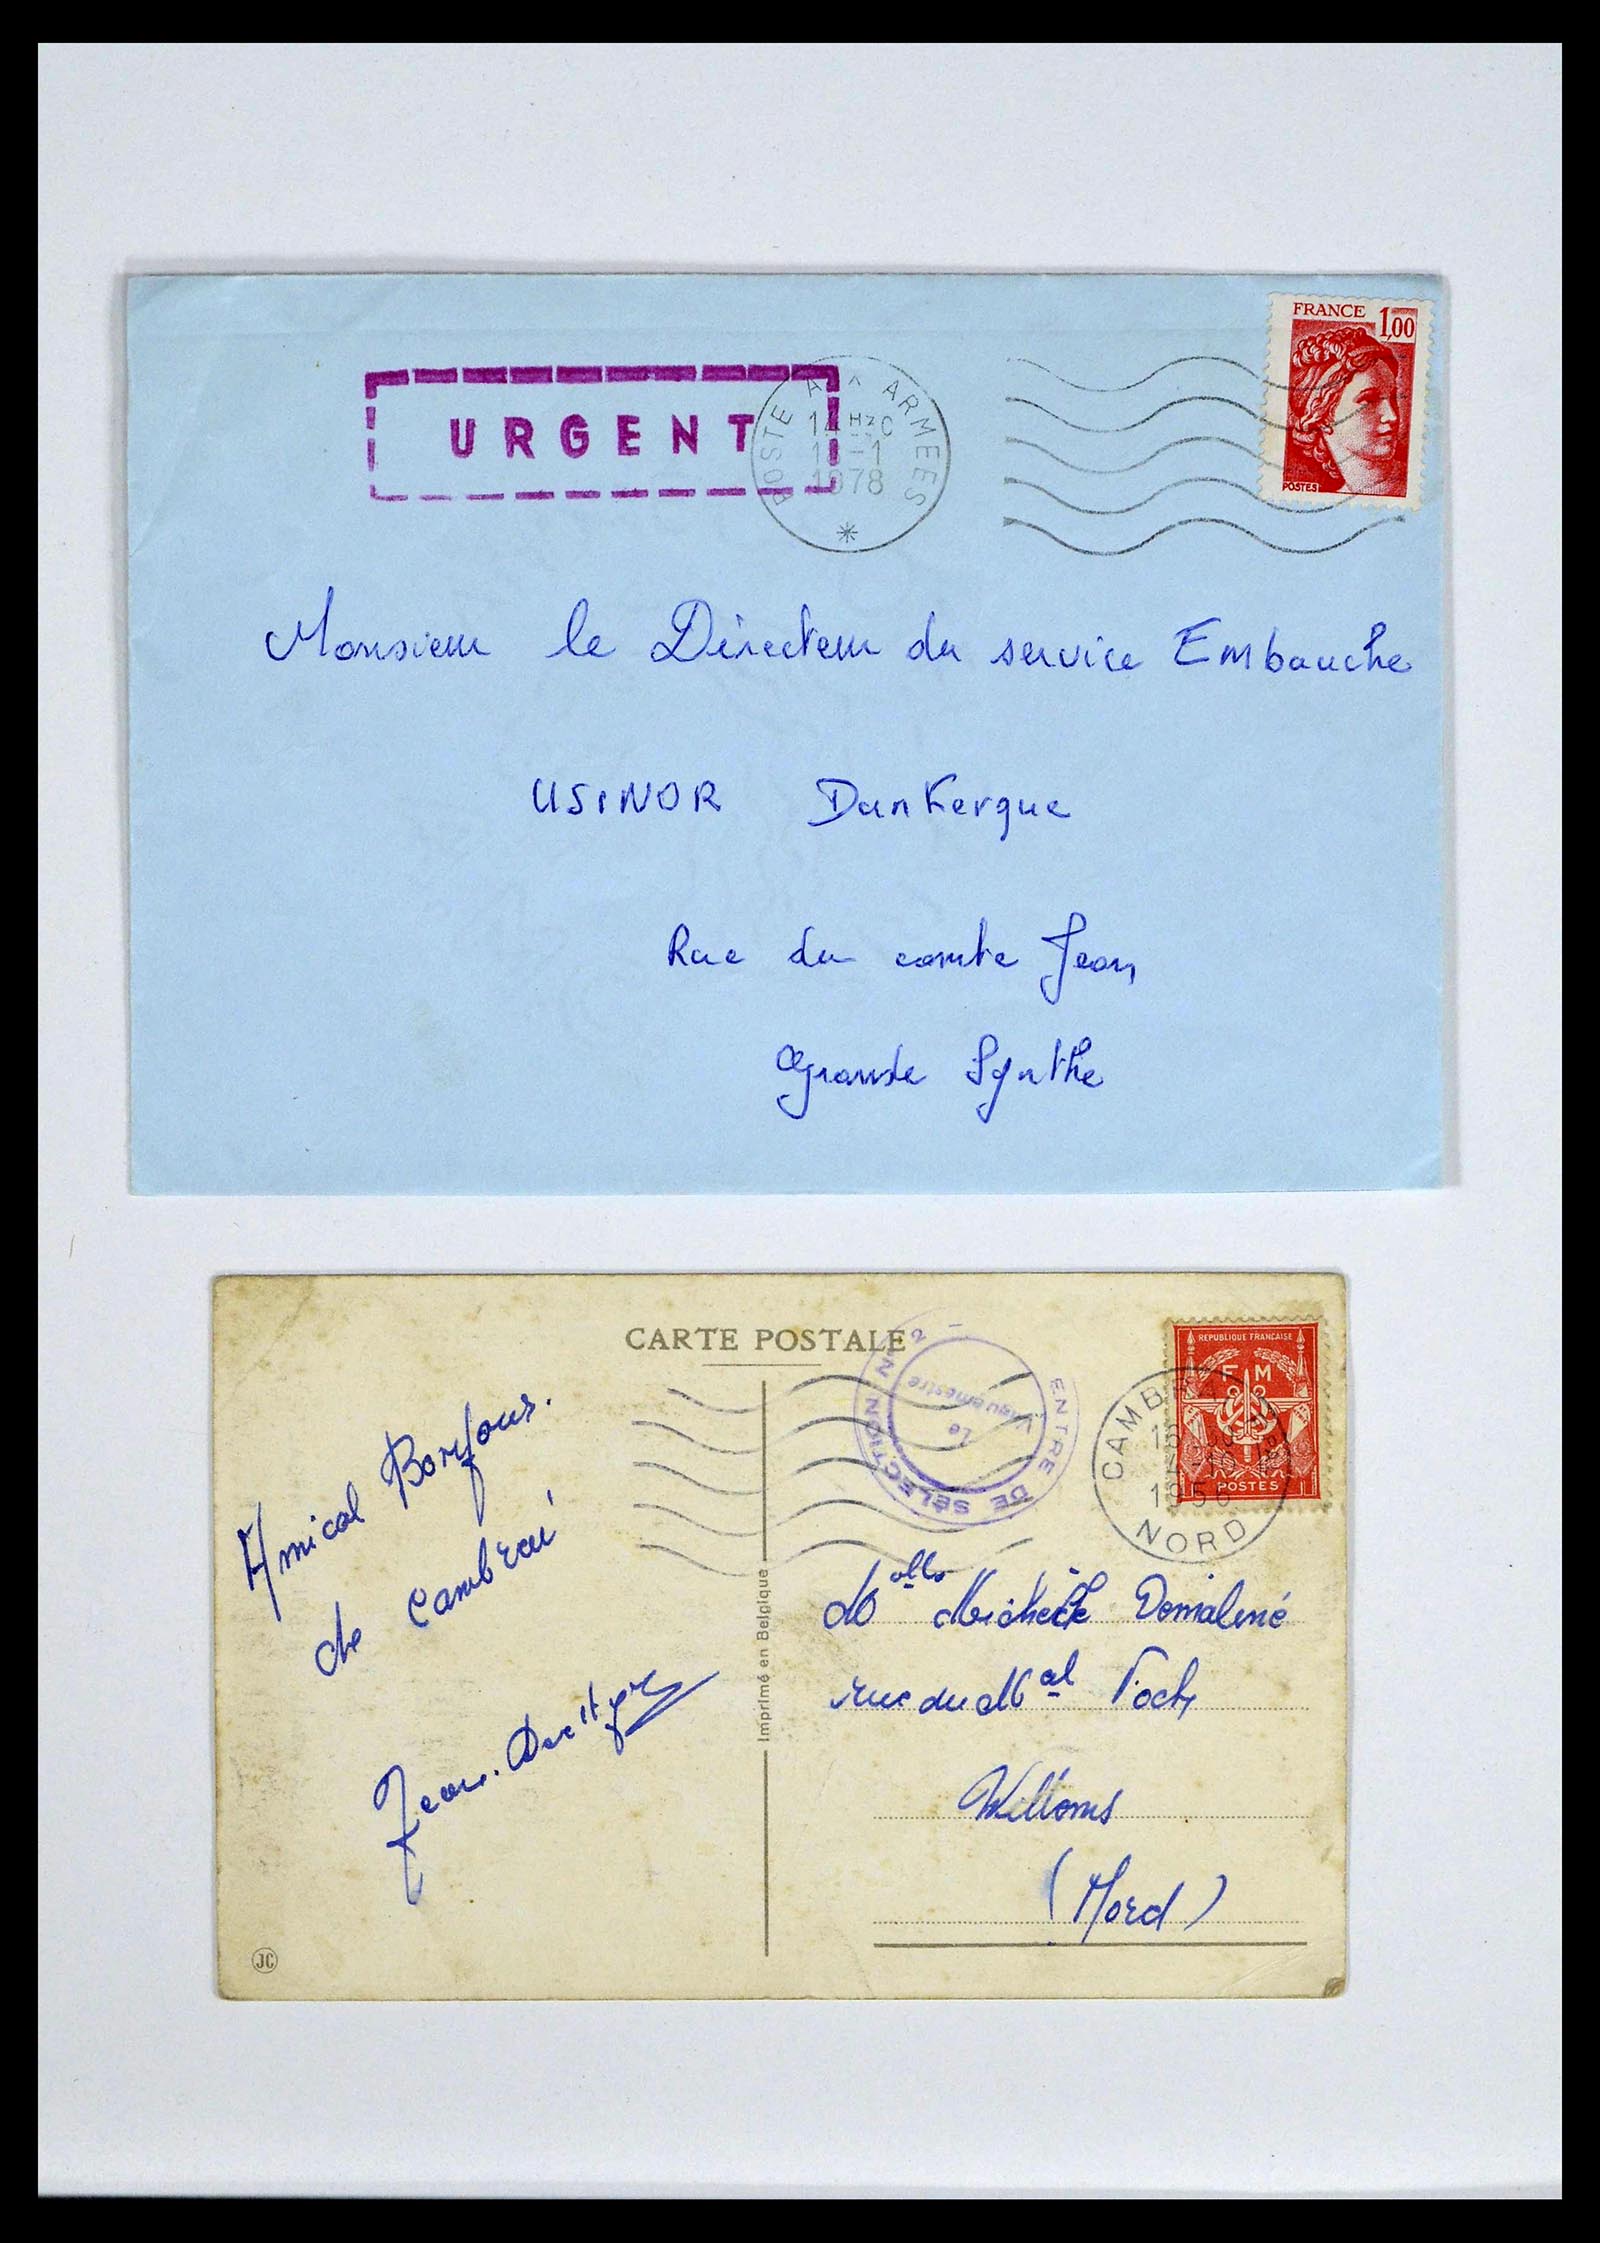 FRANCE 1,00
POSTES
URGENT
POSTE AUX ARMEES
1978
Monsieur le Directeur du service Embauche
USINOR Dunkerque
Rue du comte Jean
Grande Synthe
CARTE POSTALE
REPUBLIQUE FRANCAISE
F M
POSTES
CAMBRAI
1956
NORD
CENTRE DE SÉLECTION N° 2
Le
Vaguemestre
Amical Bonjour.
de Cambrai
Jean.
Imprimé en Belgique
Melle Michèle
rue du Mal Foch
Willems
(Nord)
JC